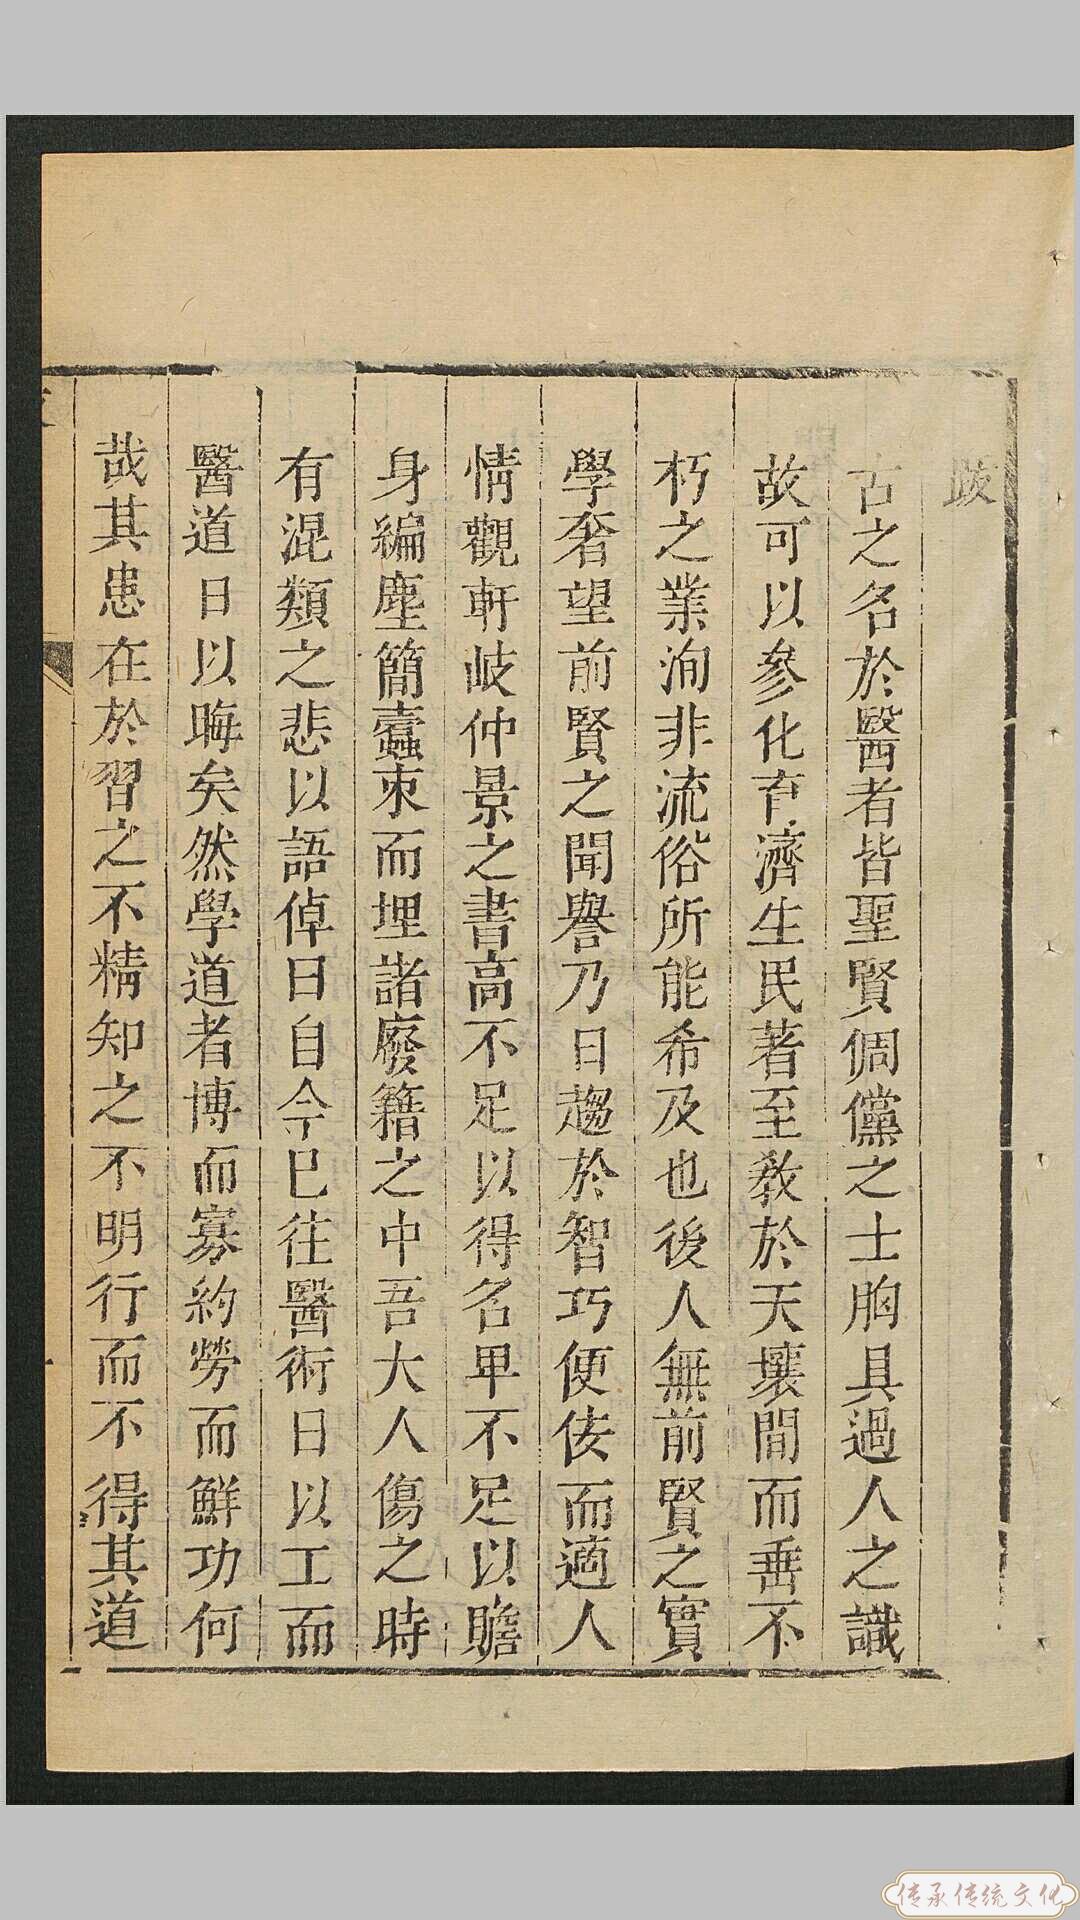 跋
古之名於醫者皆聖賢倜儻之士胸具過人之識
故可以參化育濟生民著至教於天壤間而垂不
朽之業洵非流俗所能希及也後人無前賢之實
學奢望前賢之聞譽乃日趨於智巧便佞而適人
情觀軒岐仲景之書高不足以得名卑不足以贍
身編塵簡蠹束而埋諸廢籍之中吾大人傷之時
有混類之悲以語倬曰自今已往醫術日以工而
醫道日以晦矣然學道者博而寡約勞而鮮功何
哉其患在於習之不精知之不明行而不得其道
传承传统文化